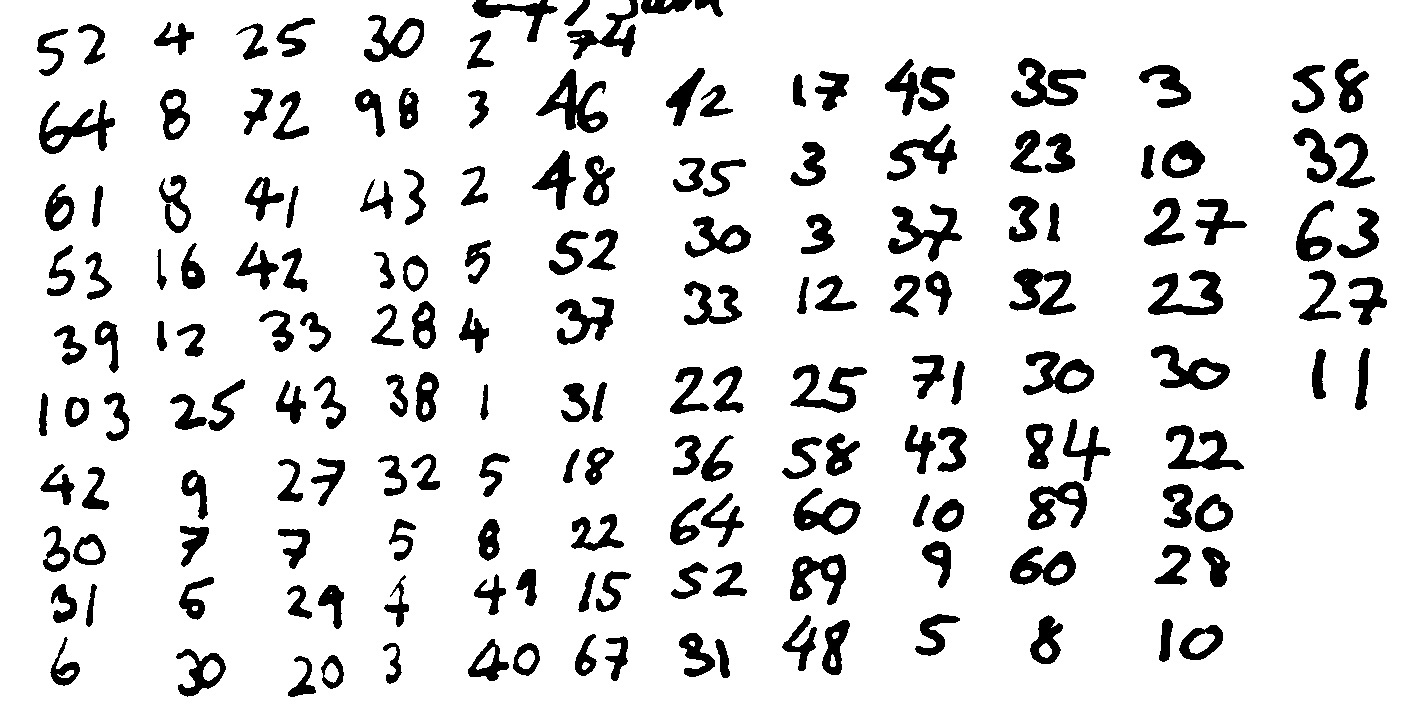 52 4 25 30 2 74
64 8 72 98 3 46 42 17 45 35 3 58
61 8 41 43 2 48 35 3 54 23 10 32
53 16 42 30 5 52 30 3 37 31 27 63
39 12 33 28 4 37 33 12 29 32 23 27
103 25 43 38 1 31 22 25 71 30 30 11
42 9 27 32 5 18 36 58 43 84 22
30 7 7 5 8 22 64 60 10 89 30
31 5 29 4 49 15 52 89 9 60 28
6 30 20 3 40 67 31 48 5 8 10